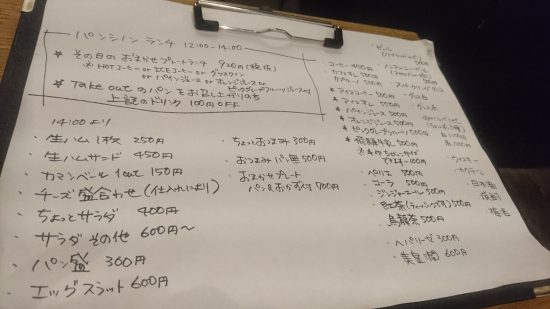 パンシノン ランチ 12:00-14:00
* その日のおまかせプレートランチ 920円(税抜)
※HOTコーヒー or ICEコーヒー or グラスワイン
or パインジュース or オレンジジュース or
ピンクグレープフルーツジュース付
* Take out のパンをお買い上げの方
上記のドリンク 100円OFF
14:00より
・生ハム1枚 250円
・生ハムサンド 450円
・カマンベール 1cut 150円
・チーズ盛合わせ(仕入れにより)
・ちょっとサラダ 400円
・サラダその他 600円~
・パン盛 300円
・エッグスラット 600円
・ちょっとおつまみ 300円
・おつまみパン無 500円
・おまかせプレート
パン&おかず付 700円
・ビール
・コーヒー 400円
・カフェオレ 500円
* アイスコーヒー 500円
* アイスオレ 550円
* パインジュース 500円
* オレンジジュース 500円
* ピンクグレープフルーツ 500円
* 飛騨牛乳 500円
・ペリエ 500円
・コーラ 500円
・ジンジャーエール 500円
・紅茶(ティーバッグです) 500円
・烏龍茶 500円
・ヘパリーゼ 300円
・美皇潤 600円
・ウイスキー
・カクテル
・日本酒
・焼酎
・梅酒